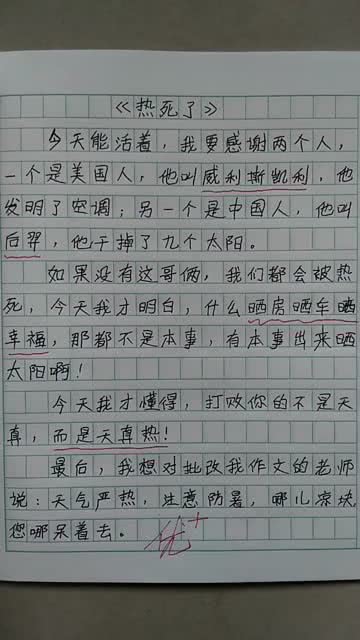 《热死了》
今天能活着，我要感谢两个人，
一个是美国人，他叫威利斯凯利，他
发明了空调；另一个是中国人，他叫
后羿，他干掉了九个太阳。
如果没有这哥俩，我们都会被热
死，今天我才明白，什么晒房晒车晒
幸福，那都不是本事，有本事出来晒
太阳啊！
今天我才懂得，打败你的不是天
真，而是天真热！
最后，我想对批改我作文的老师
说：天气严热，注意防暑，哪儿凉快，
您哪呆着去。
优+